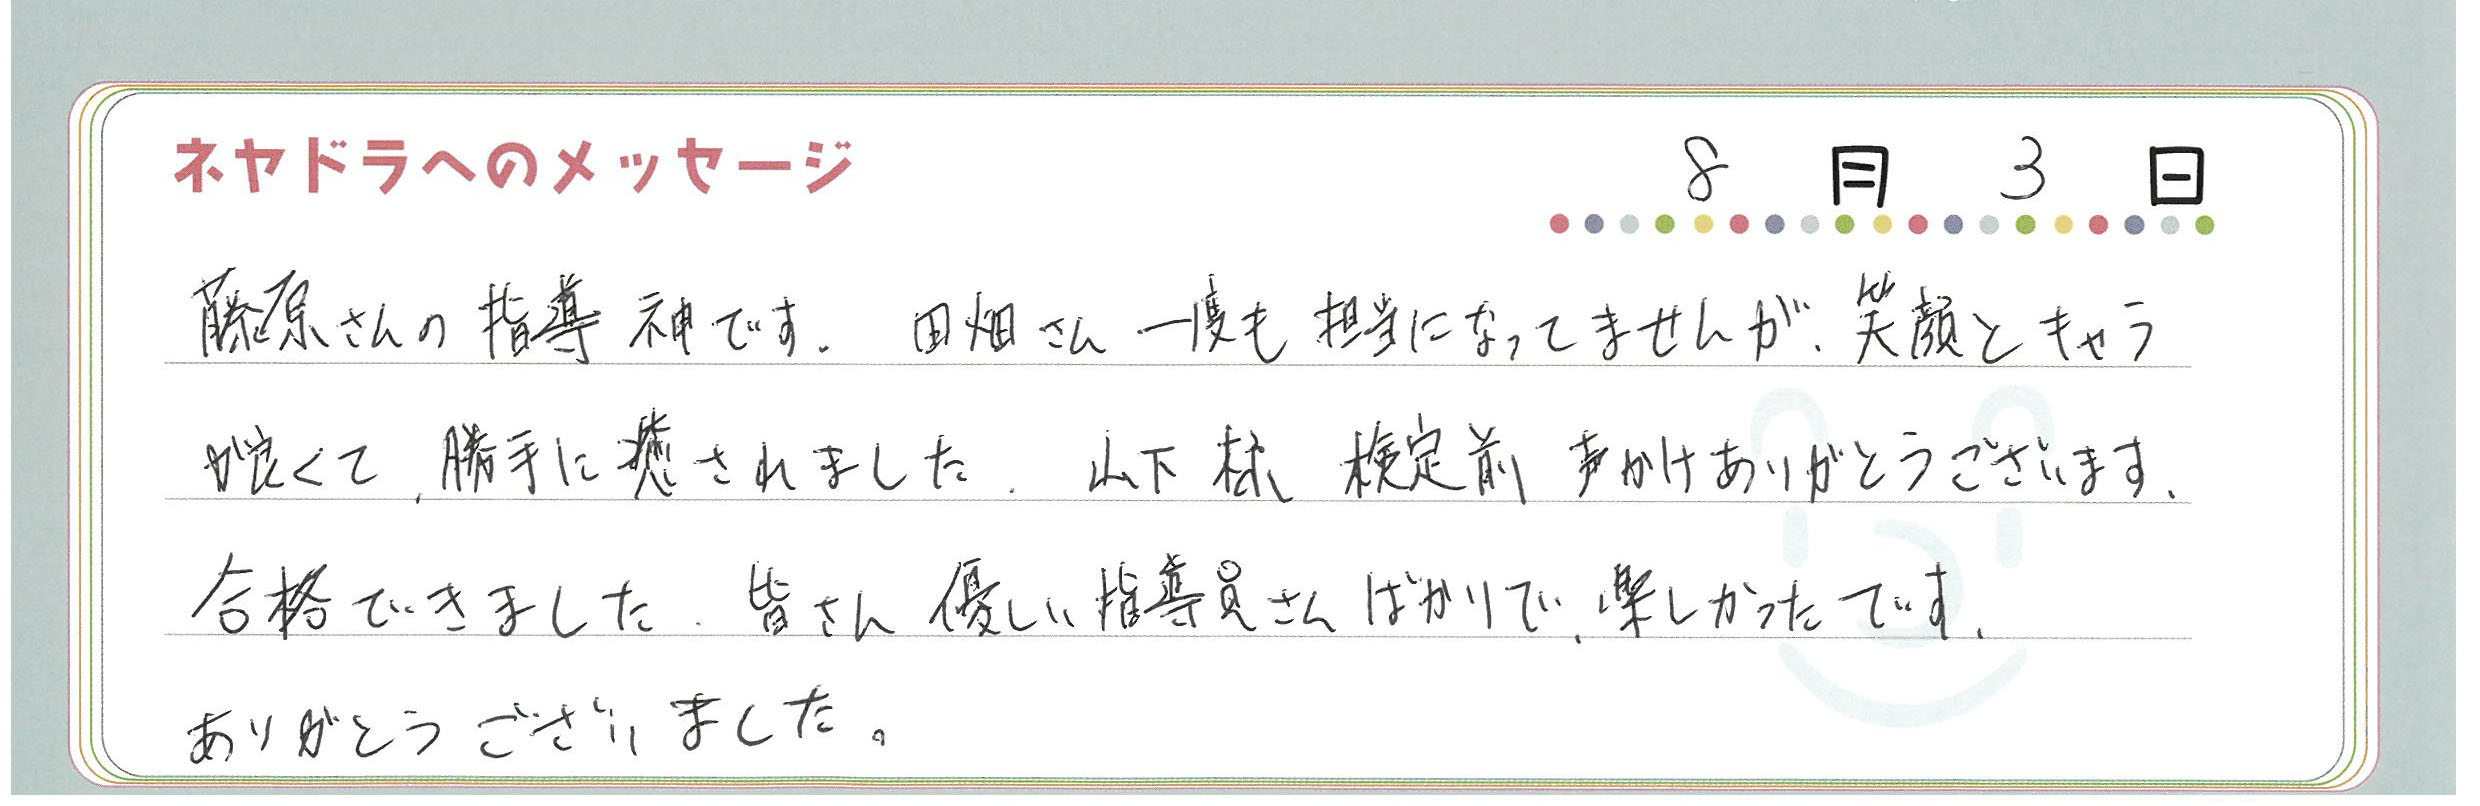 ネヤドラへのメッセージ
8月3日
藤原さんの指導神です. 田畑さん一度も担当になってませんが、笑顔とキャラ
が良くて、勝手に癒されました. 山下様 検定前 声かけありがとうございます.
合格できました. 皆さん優しい指導員さんばかりで、楽しかったです.
ありがとうございました。